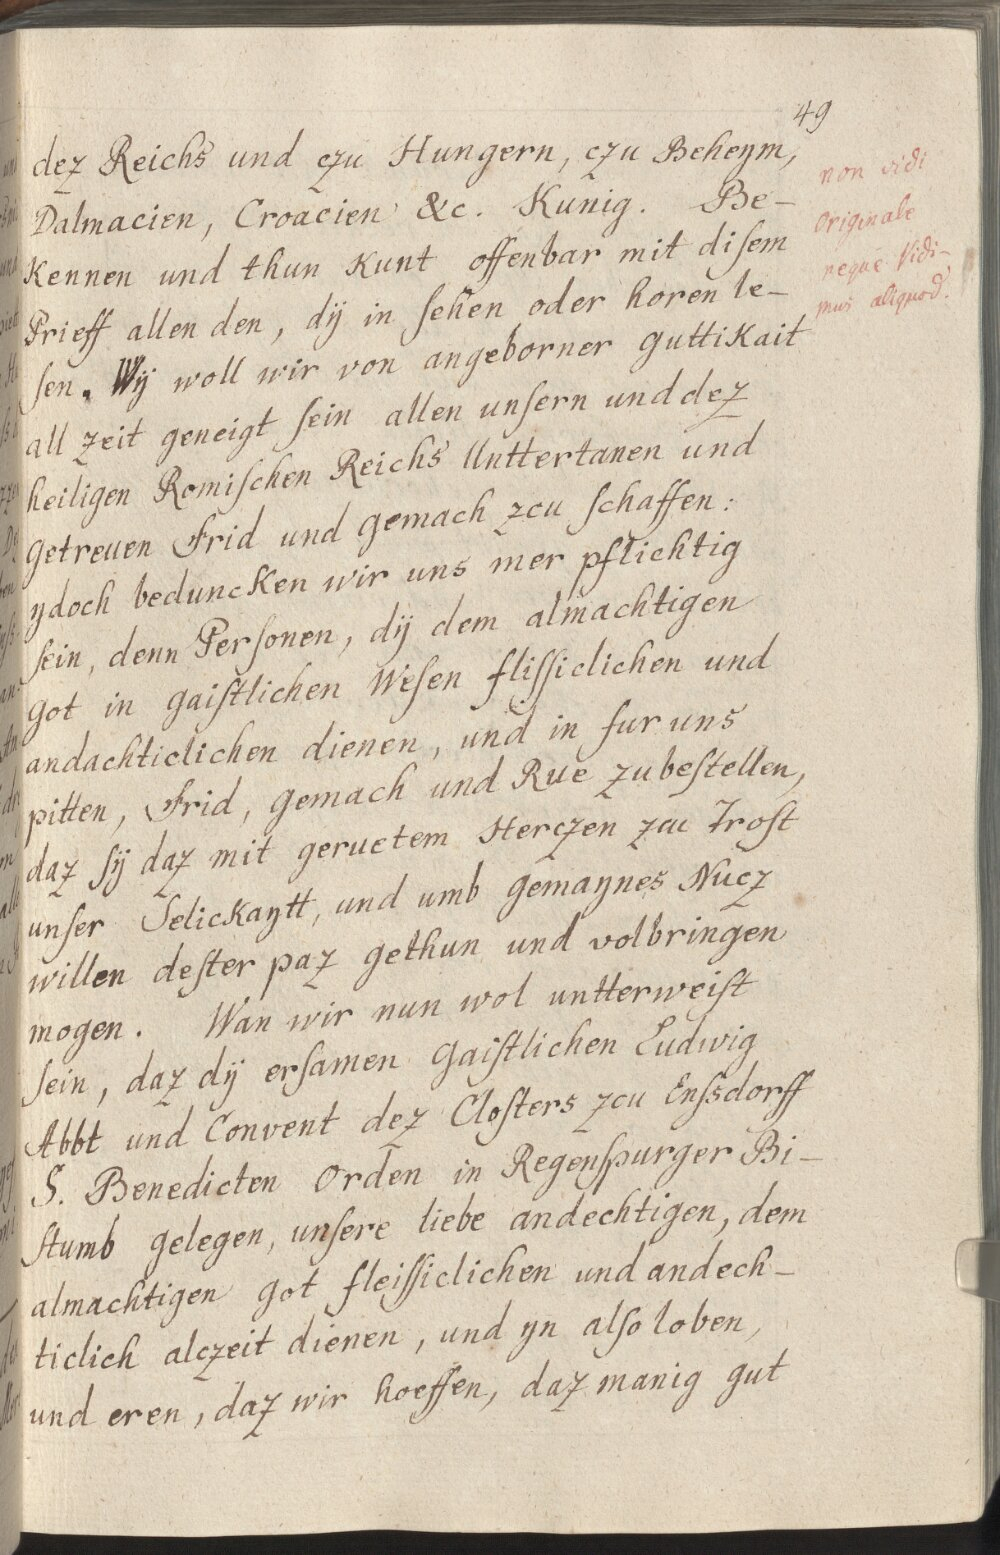 49
dez Reichs und czu Hungern, czu Beheym,
Dalmacien, Croacien &c. Kunig. Be-
Kennen und thun Kunt offenbar mit disem
Prieff allen den, dÿ in sehen oder horen le-
sen. Wÿ woll wir von angeborner guttiKait
all zeit geneigt sein allen unsern und dez
heiligen Romischen Reichs Unttertanen und
Getreuen Frid und gemach zcu schaffen:
ydoch beduncKen wir uns mer pflichtig
sein, denn Personen, dÿ dem almachtigen
Got in gaistlichen Wesen flissiclichen und
andachticlichen dienen, und in fur uns
pitten, Frid, gemach und Rue zubestellen,
daz sÿ daz mit geructem Herczen zcu Trost
unser SelicKaytt, und umb gemaynes Nucz
willen dester paz gethun und volbringen
mogen. Wan wir nun wol untterweist
sein, daz dÿ ersamen Gaistlichen Ludwig
Abbt und Convent dez Closters zcu Enssdorff
S. Benedicten Orden in Regenspurger Bi-
stumb gelegen, unsere liebe andechtigen, dem
almachtigen Got fleissiclichen und andech-
ticlich alczeit dienen, und yn also loben,
und eren, daz wir hoeffen, daz manig gut
non vidi
Originale
neque Vidi-
mus aliquod.